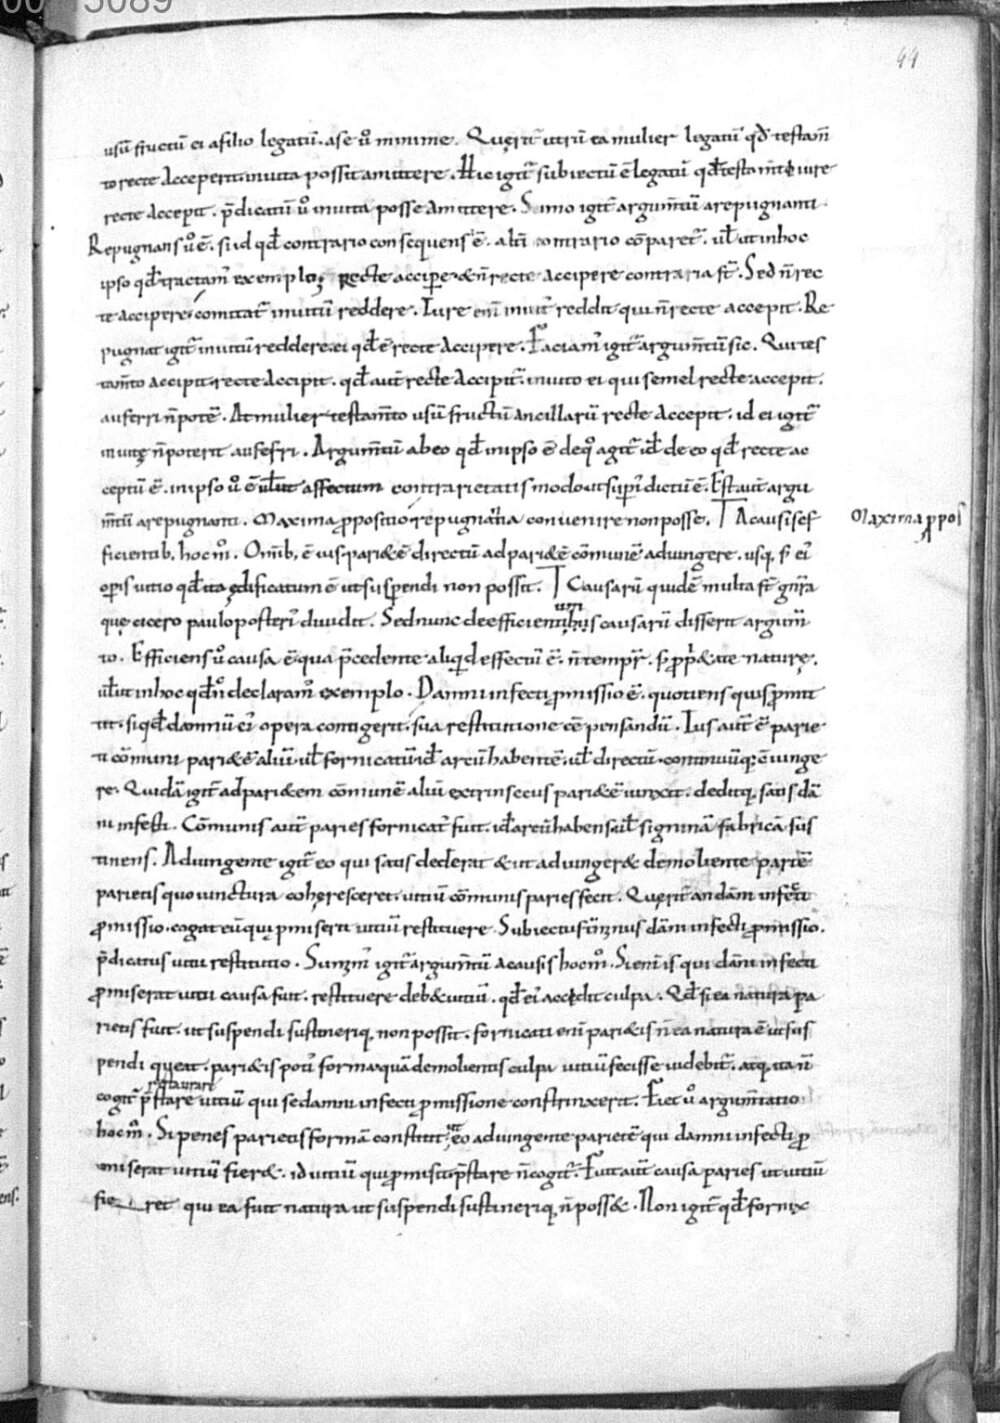 00 5089
44
usū fructū ei afilio legatū. ase ū minime. Querit̄ utrū ea mulier legatū qđ testam̄
to recte acceperit inuita possit amittere. Hic igit̄ subiectū ē legatū qđ testam̄to iure
recte accepit. p̄dicatū ū inuita posse amittere. Sumo igit̄ argum̄tū arepugnanti.
Repugnans ū ē. si id qđ contrario consequens ē. alt̄i contrario cōparet̄. ut̄ ut inhoc
ipso qđ tractam̄ exemplo; recte accipere & n̄ recte accipere contraria st̄. Sed n̄ rec
te accipere comitat̄ inuitū reddere. Iure eni inuit̄ reddit qui n̄ recte accepit. Re
pugnat igit̄ inuitū reddere. ei qđ ē recte accipere. Faciam̄ igit̄ argum̄tū sic. Qui tes
tam̄to accipit recte accipit. qđ aut̄ recte accipit̄. inuito ei qui semel recte accepit.
auferri n̄ potē. At mulier testam̄to usū fructū ancillarū recte accepit. id ei igit̄
inuitę n̄ poterit auferri. Argum̄tū ab eo qđ inipso ē de q̊ agit̄ id de eo qđ recte ac
ceptū ē. inipso ū ē uelut affectum contrarietatis modo ut sup̄i dictū ē. Est aut̄ argu
m̄tū arepugnanti. Maxima p̄positio repugnantia conuenire non posse. T A causis ef
Maxima p̄pos̄
ficientib. hoc m̄. Omib. ē ius parietē directū ad parietē cōmunē adiungere. usq. s̄ ei̅
operis uitio qđ ita ędificatum ē ut suspendi non possit. T Causarū quidē multa st̄ gn̄ra
quę cicero paulo posteri̅ diuidit. Sed nunc de efficientibus causarū disserit argum̄
tium
to. Efficiens ū causa ē qua p̄cedente aliquid effectū ē. n̄ tempr̄. s̄ pp̄ietate naturę.
ut̄ ut inhoc qđ n̄ declaram̄ exemplo. Damni infecti p̄missio ē. quotiens quis p̄mit
tit. si qđ damnū ei̅ opera contigerit. sua restitutione cōpensandū. Ius aut̄ ē parie
ti cōmuni parietē aliū ut̄ fornicatū id arcū habentē. ut̄ directū. continuūq; ē iunge
re. Quidā igit̄ ad parietem cōmunē aliū extrinsecus parietē iunxit. deditq. satis dā
ni infecti. Cōmunis aut̄ paries fornicat̄ fuit. id arcū habens ut̄ signinā fabricā sus
tinens. Adiungente igit̄ eo qui satis dederat & ut adiungeret demoliente partē
parietis quo iunctura coheresceret. uitiū cōmunis paries fecit. Querit̄ an dām infecti
p̄missio. cogat eū qui p̄miserit uitiū restituere. Subiectus t̄minus dām infecti p̄missio.
p̄dicatus uitii restitutio. Sumim̄ igit̄ argum̄tū a causis hoc m̄. Si eni is qui dāni infecti
p̄miserat uitii causa fuit. restituere debet uitiū. qđ ei̅ accedit culpa. Qđ si ea natura pa
rietis fuit. ut suspendi sustinerìq. non possit. fornicati eni parietis n̄ ea natura ē ut sus
pendi queat. parietis poti̅ forma quā demolientis culpa uitiū fecisse uidebit̄. atq. ita n̄
cogit̄ p̄stare uitiū qui se damni infecti p̄missione constrinxerit. Fiet ū argum̄tatio
restaurare
hoc m̄. Si penes parietis formā constitit ut eo adiungente parietē qui damni infecti p̄
miserat uitiū fieret. id uitiū qui p̄misit p̄stare n̄ cogit̄. Fuit aut̄ causa paries ut uitiū
fie ret qui ea fuit natura ut suspendi sustinerìq. n̄ posset. Non igit̄ qđ fornix